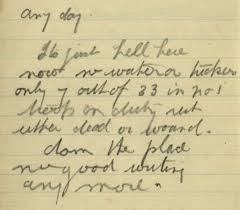 any day.
Its just hell here
now no water or tucker
only 7 out of 33 in no 1
troop on duty not
either dead or wound.
dam the place
no good writing
any more.